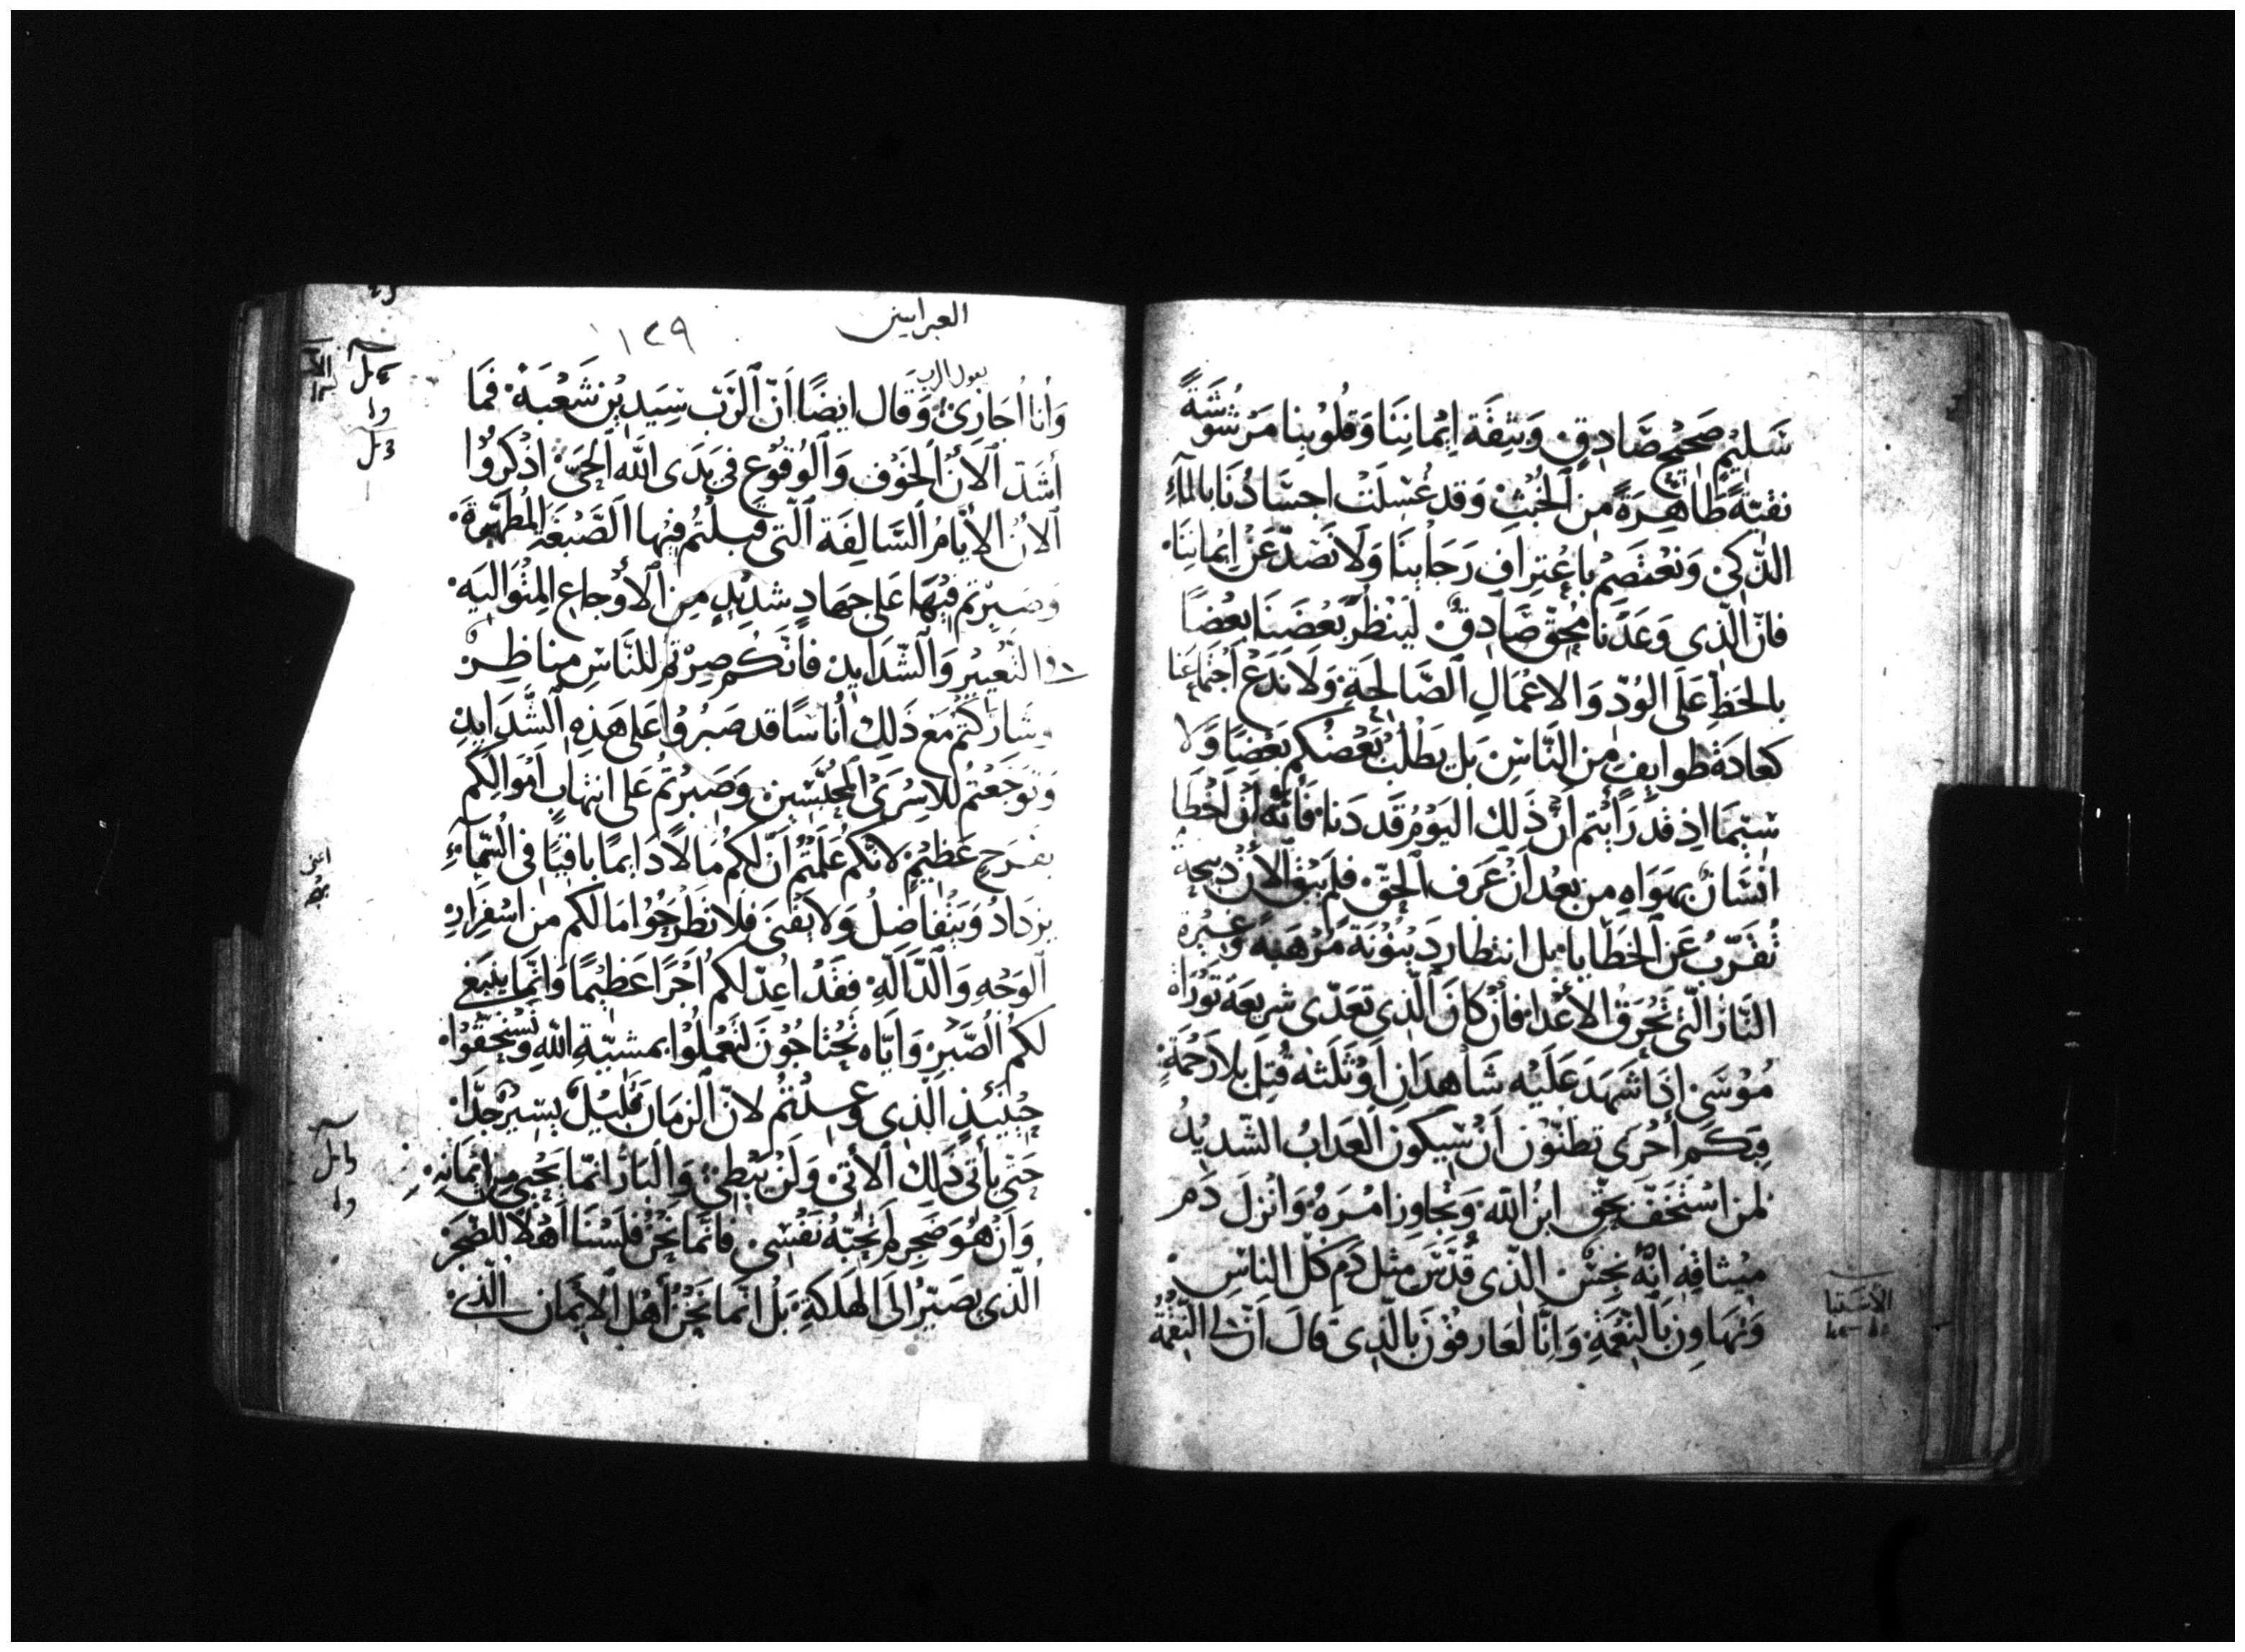 سَليْمٍ صَحيْحٍ صَادِقٍ وَبِثِقَة اِيْمانِنَا وَقُلُوْبِنا مَرْشُوْشَةً
نقيّةً طَاهِرَةً مِن اَلخُبْثِ وَقَد غُسِلَتْ اجسَادُنَا بالمآءِ
الذّكىْ وَنَعْتَصِمْ باِعْتِرافِ رَجَاْئِنَا وَلَا نَصُدّ عَنْ اِيْمانِنَا
فانّ الّذى وَعَدَنا مُحِقّ صَادِقٌ لِيَنْظُرْ بَعْضَنَا بعْضًا
بالحَظِ عَلَى الوُدّ وَالاعْمَالِ الصَّالِحَةِ وَلَا نَدَعْ اجْتمَاعَنا
كعَادَة طوايفٍ مِن النَّاسِ بَل يَطْلُبْ بَعْضُكم بَعْضًا وَلَا
سيّمَا اذ قد رَاَيْتم اَنّ ذَلِكَ اليَوْمُ قَد دَنا فَانّه اِنْ اَخْطَا
انسَانٌ بهَوَاهِ مِن بَعْد اَنْ عَرَف الحَقّ فلَم يَبْقَ الاْنَ ذبيحَة
تُقَرّبُ عَن الخَطَايا بل انتظار دَيْنوُنَة مُرْهَبَة وَغَيْرة
النَّار الّتى تُحْرِق الاْعْدا فاِنْ كانَ الّذى تعَدّى شريعَة تَوْرَاة
مُوْسَى اِذَا شَهدَ عَلَيْه شَاهدَانِ اَوْ ثَلَثه قُتِل بلا رَحْمَةٍ
فبكَم اُحْرَى تظنّوْن اَنْ سَيكون العَذابُ الشّديْدُ
لمَن اسْتَخَفّ بحَقِ ابن اللّه وَتجَاوز امْرَهُ وَانْزلَ دَم
ميْثاقِهِ انّهُ نجِسٌ الذى قُدّسَ مثل دَم كلّ الناسِ
وَتهَاونَ بَالنِعْمَةِ وَانّا لعَارفوْنَ بالّذى قالَ اَنّ لى النِّقْمَةُ
الأستبا
العبرانيين
١٢٩
يقول الرب
وَأَنا اُجَازِىْ وَقَال ايضًا اَنّ اَلرّبّ سَيَديْن شَعْبَهُ فَمَا
أَشَدّ اَلانْ اَلخَوْف وَاَلوُقوُع فى يَدَى اللّه اَلحَىّ اذْكرُوْا
اَلانْ الاْيّام السَّالِفَة الّتى قَبلْتُم فيْهَا الصَّبْغَةَ المُطَهّرَةَ
وَصبرْتم فيْهَا عَلى جهَادٍ شديْدٍ مِن اَلاَوْجاعِ المتْوَاليَه
فى التَعْييْر وَالشّدَايْد فانّكُم صِرْتم للنَّاسِ مناظِرْ
وشَارَكتُم مَع ذَلِكَ اُناسًا قد صَبرُوْا عَلى هَذِهِ الشَّدَايد
وَتَوَجّعْتُم للاسْرَى المحَبَّسيْن وَصَبرْتُم عَلى انتهَاب اَمْوالِكُم
بفَرَح عَظيْم لاَنّكم عَلمْتم اَنّ لَكم مَالاً دَايمًا باقيًا فى السّمآءِ
يزدَادُ وَيَتفاضلُ وَلا يَفْنَى فلا تطرَحُوْا مَا لكم من اسْفِرَارِ
الوَجْهِ وَالدّالّه فقَد اُعِدّ لكم اَجْرًا عَظيْمًا وَانّمَا يَنبَغى
لكمُ الصَّبر وَايّاه تَحْتاجُوْن لتَعْملُوْا بمشيّة اللّهِ وَتَسْتحِقّوْا
حيْنيذٍ الّذى وعِدْتُم لانّ الزمَان قليْلٌ يسيرْ جدًّا
حَتّى يأتى ذَلِك الاْتى وَلَن يُبْطِى وَالبَارّ انّما يَحْيى من ايمَانِهِ
وَانْ هُوَ ضَجر لَم تُحِبّهُ نَفسِى فاَمّا نَحْنُ فلَسْنَا اَهْلاً للضجَر
الّذى يصَيّرُ الَى الهَلكَةِ بَل انّما نَحْنُ أَهْل الاْيمَان الّذى